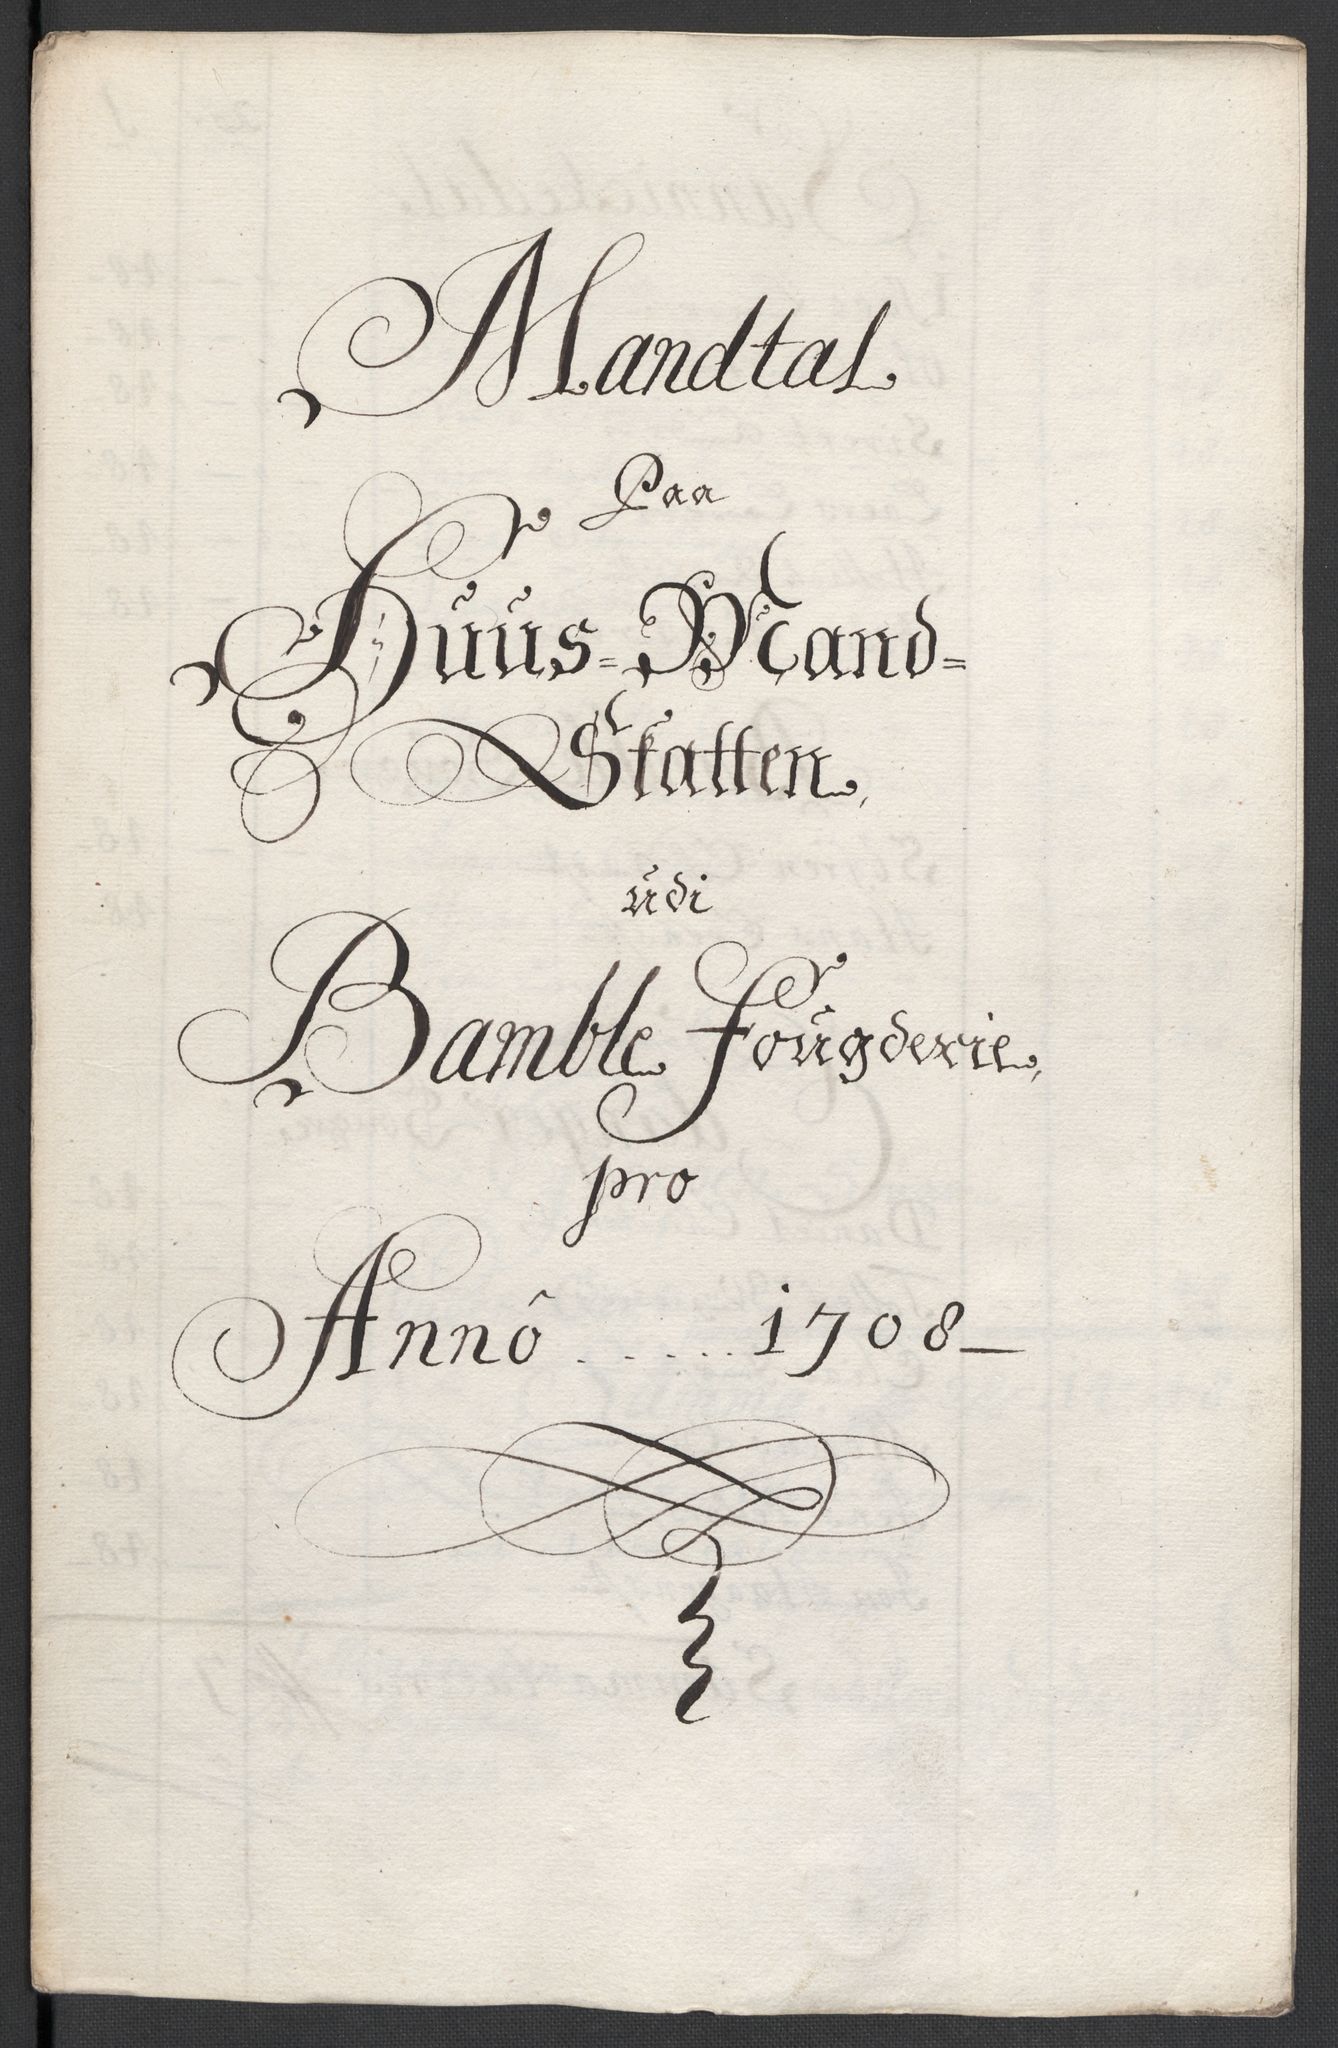 Mandtal
Paa
Huus=Mand=
Skatten,
udi
Bamble Fougderie,
pro
Annô ...... 1708